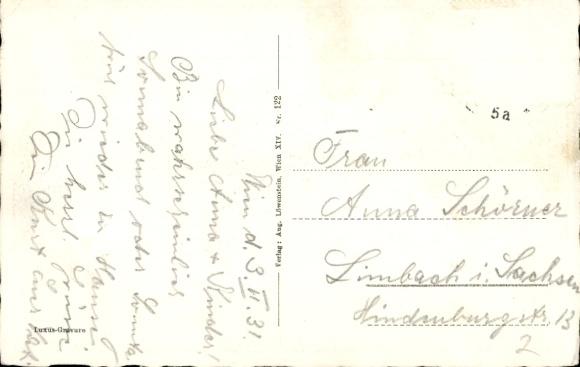 Wien d. 3. II. 31.
Liebe Anna & Kinder!
Bin wahrscheinlich
Sonnabend oder Sonntag
früh wieder in
Die herzl. Grüsse
Dein Kurt
Luxus-Gravure
Verlag: Aug. Löwenstein, Wien XIV. Nr. 122
5a
Frau
Anna Schörner
Limbach i. Sachsen
Hindenburgstr. 13
2